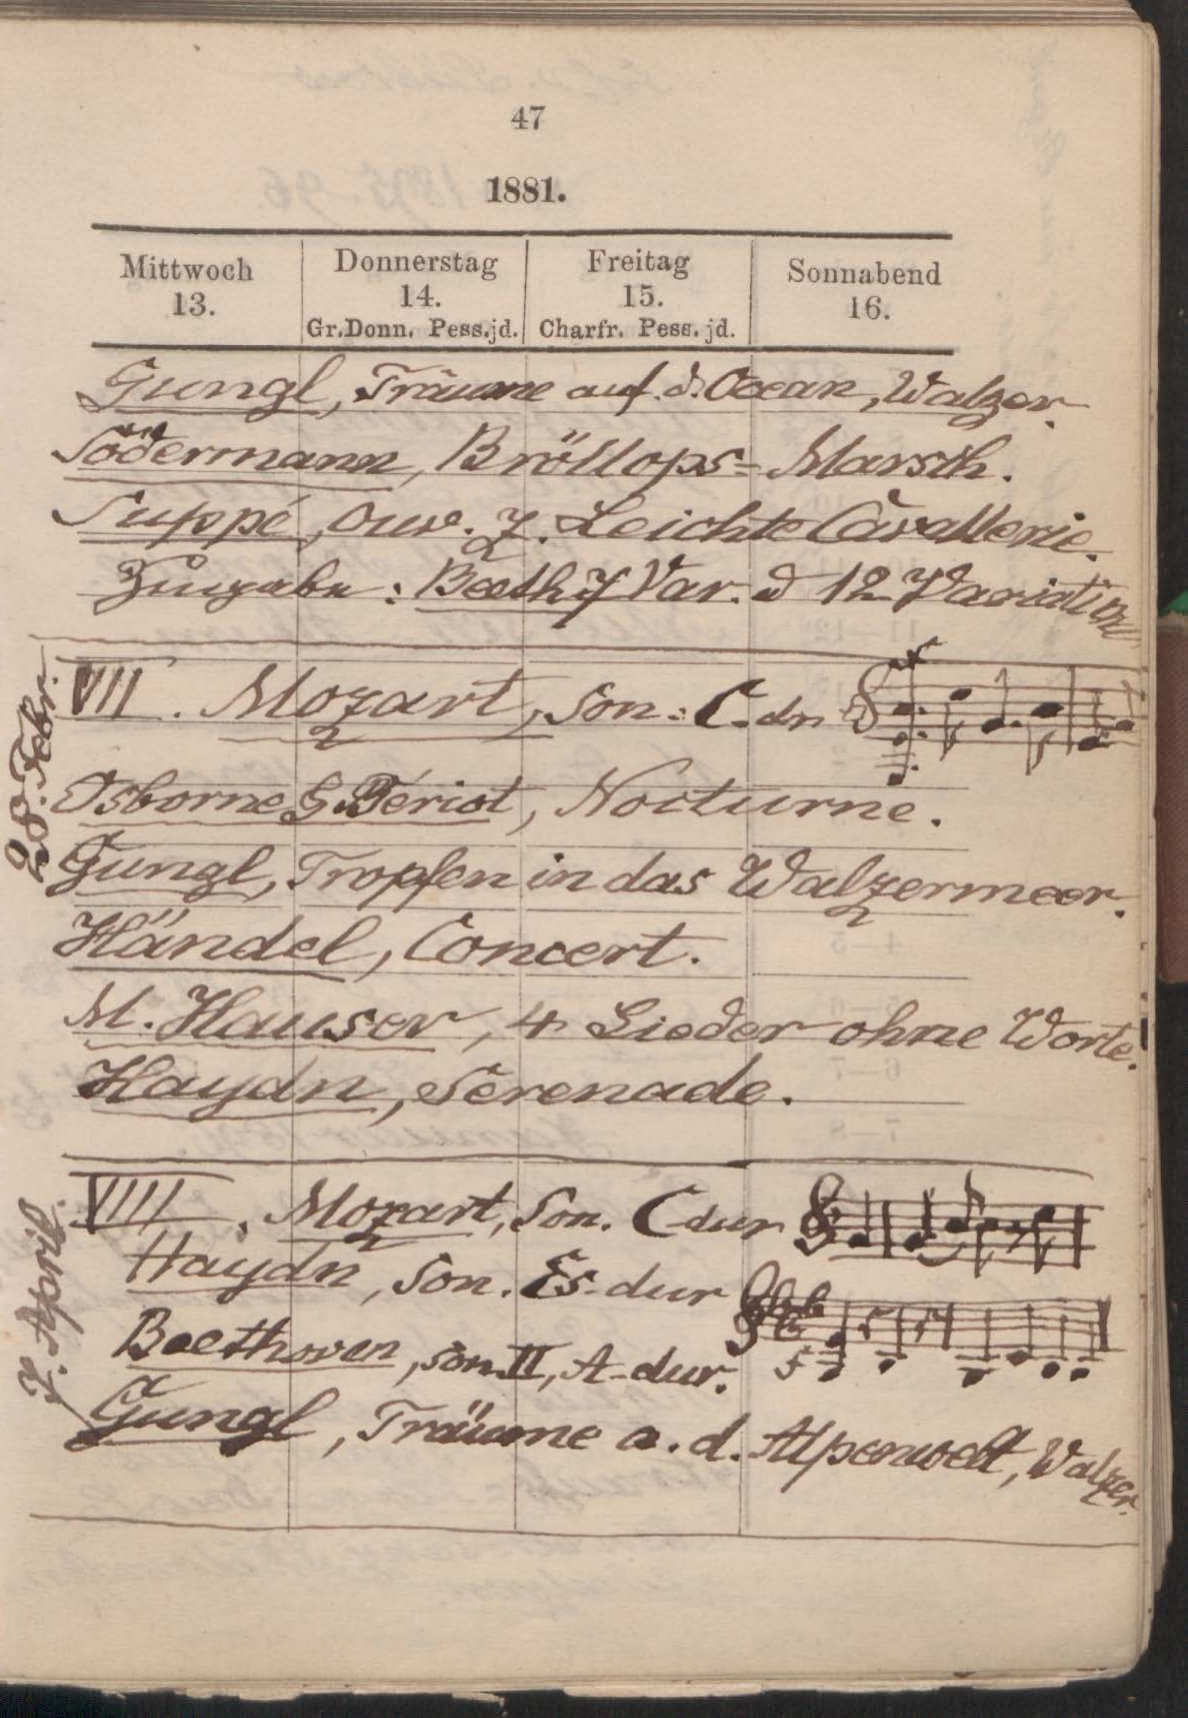 47
1881.
Mittwoch 13.
Donnerstag 14. Gr.Donn. Pess.jd.
Freitag 15. Charfr. Pess.jd.
Sonnabend 16.
Gungl, Träume auf d. Ocean, Walzer.
Södermann, Bröllops-Marsch.
Suppé, Ouv. z. Leichte Cavallerie.
Zugabe: Beeth. 7 Var. 12 Variation
28. Febr.
VII. Mozart, Son. C.dur
Osborne & Beriot, Nocturne.
Gungl, Tropfen in das Walzermeer.
Händel, Concert.
M. Hauser, 4 Lieder ohne Worte.
Haydn, Serenade.
7. April.
VIII. Mozart, Son. C dur
Haydn, Son. Es-dur
Beethoven, Son. II, A-dur.
Gungl, Träume a. d. Alpenwelt, Walzer.